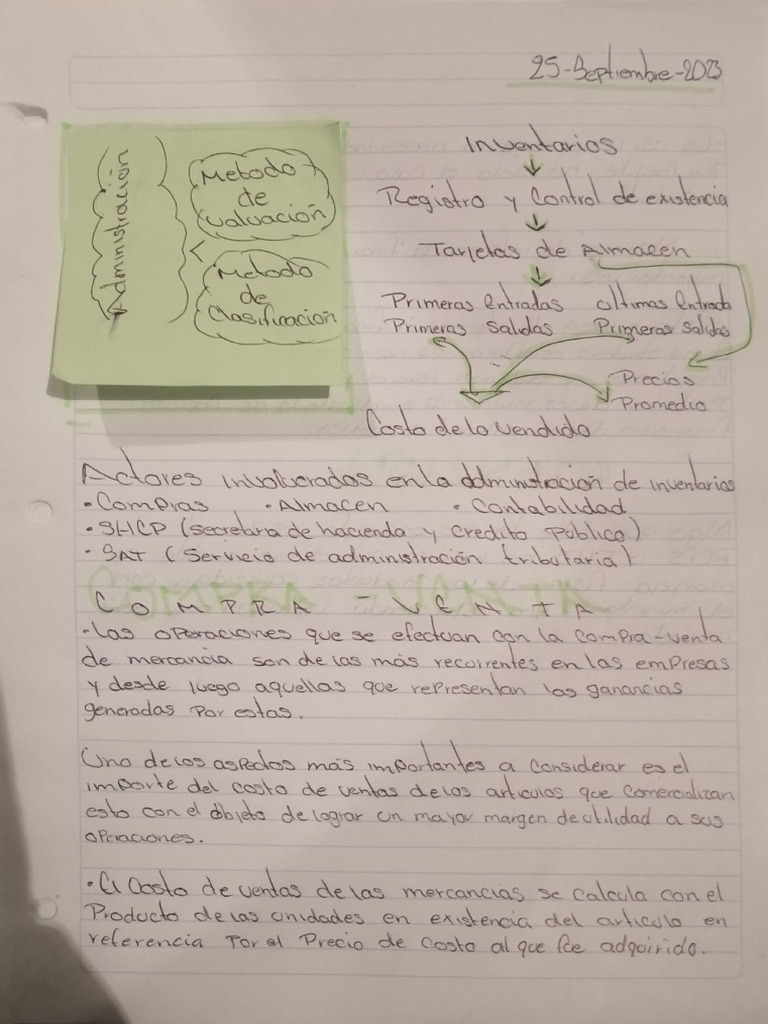 25-Septiembre-2023
Administración
Metodo
de
Valuación
Metodo
de
Clasificación
Inventarios
Registro y Control de existencia
Tarjetas de Almacen
Primeras entradas
Primeras salidas
Ultimas Entrada
Primeras Salidas
Precios
Promedio
Costo de lo vendido
Actores involucrados en la administración de inventarios
• Compras • Almacen • Contabilidad
• SHCP (secretaria de hacienda y credito Publico)
• SAT (Servicio de administración tributaria)
COMPRA - VENTA
• Las operaciones que se efectuan con la compra-venta
de mercancia son de las más recurrentes en las empresas
y desde luego aquellas que representan las ganancias
generadas por estas.
Uno de los aspectos más importantes a considerar es el
importe del costo de ventas de los articulos que comercializan
esto con el objeto de lograr un mayor margen de utilidad a sus
operaciones.
• El Costo de ventas de las mercancias se calcula con el
Producto de las unidades en existencia del articulo en
referencia Por el Precio de Costo al que fue adquirido.